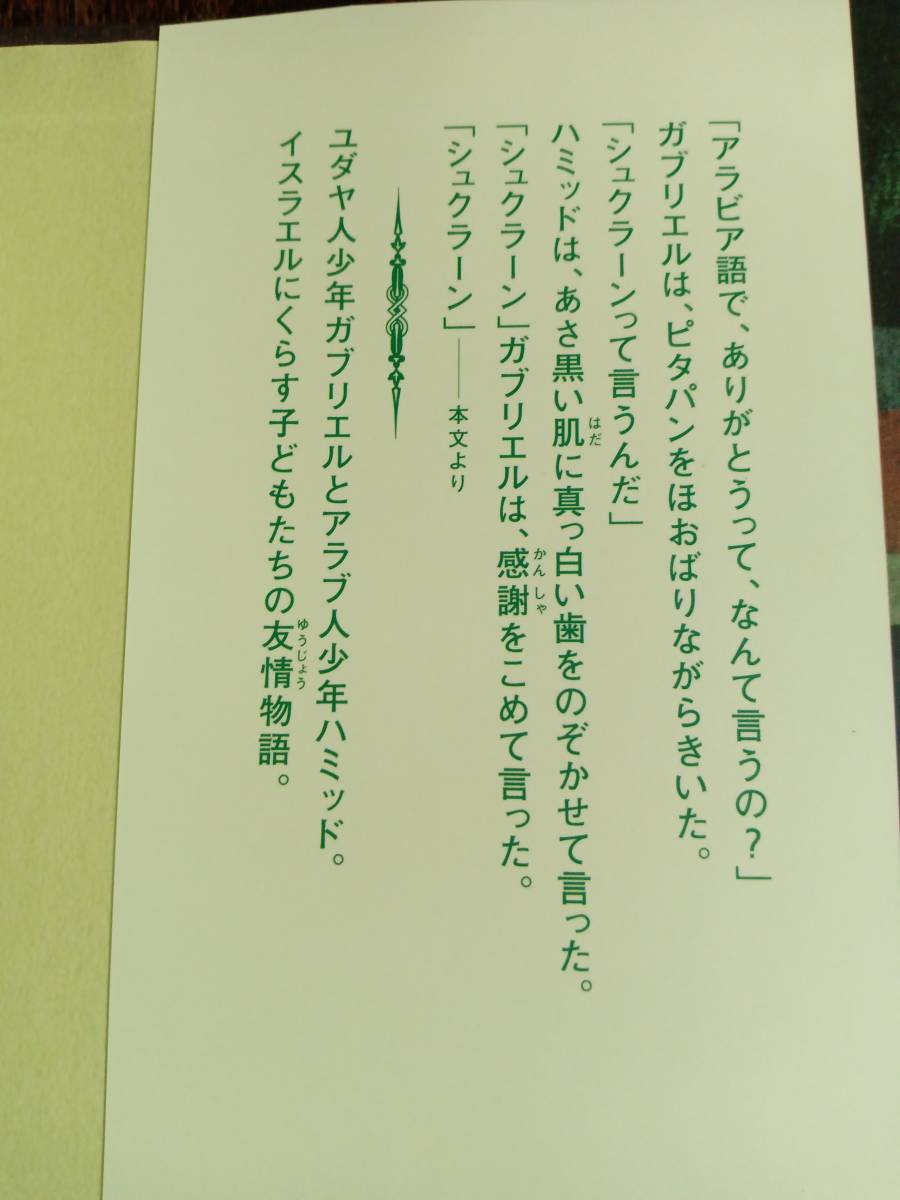 「アラビア語で、ありがとうって、なんて言うの？」
ガブリエルは、ピタパンをほおばりながらきいた。
「シュクラーンって言うんだ」
ハミッドは、あさ黒い肌に真っ白い歯をのぞかせて言った。
「シュクラーン」ガブリエルは、感謝をこめて言った。
「シュクラーン」——本文より
ユダヤ人少年ガブリエルとアラブ人少年ハミッド。
イスラエルにくらす子どもたちの友情物語。